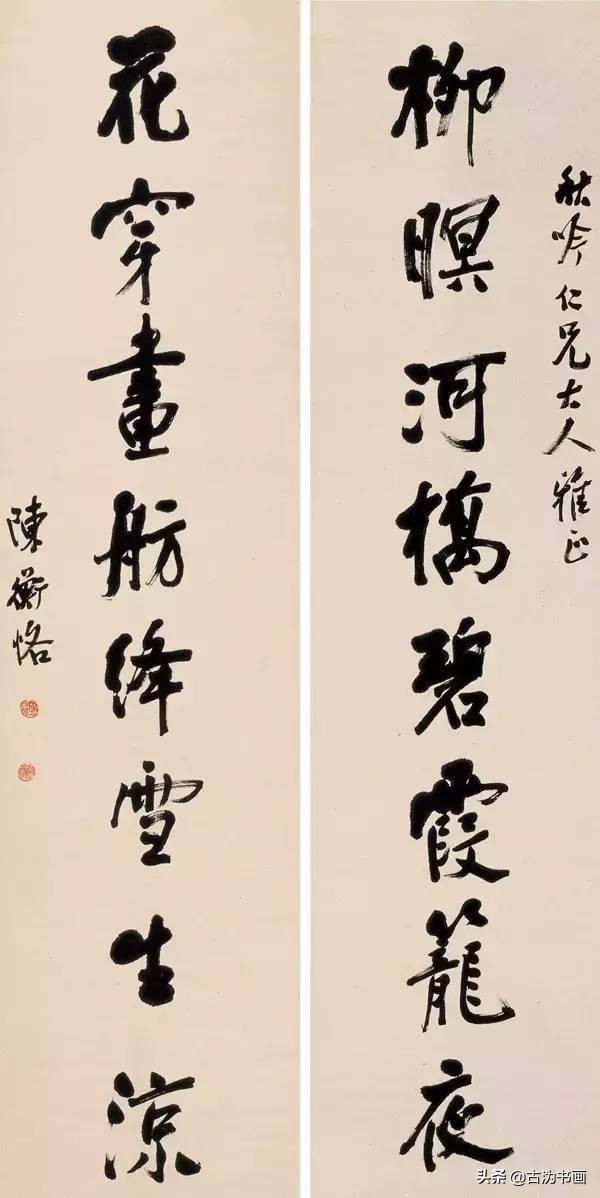 秋吟仁兄大人雅正
柳暝河橋碧霞籠夜
花穿畫舫絳雪生涼
陳衡恪
头条@古沩书画